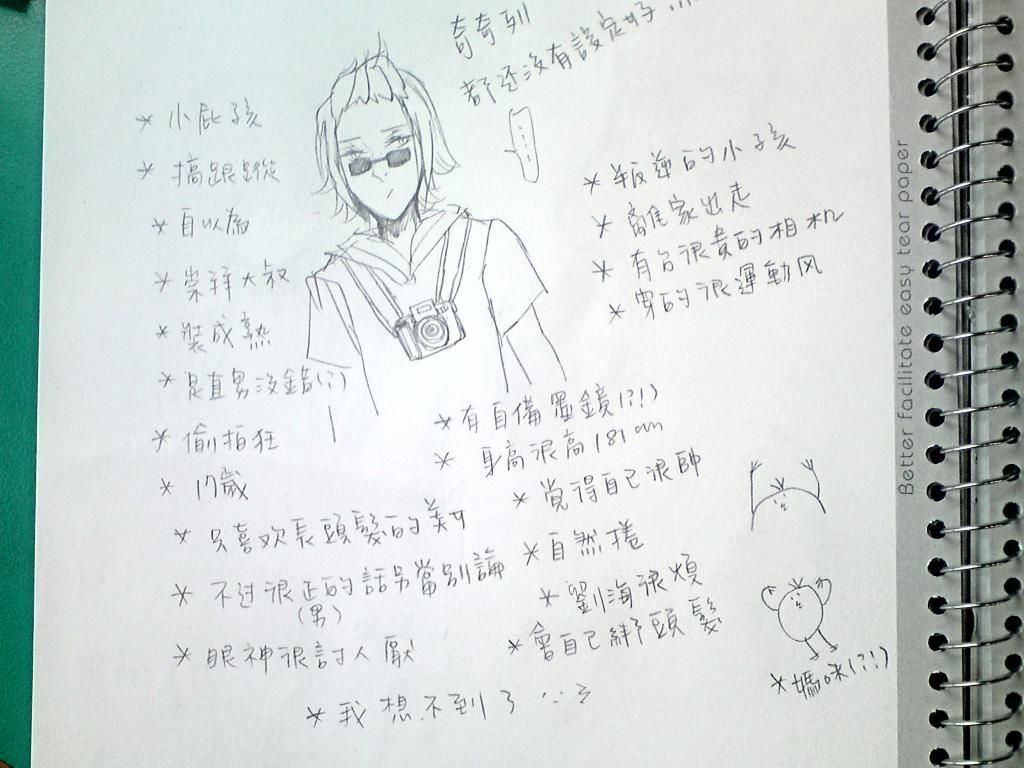 奇奇列
都还沒有設定好...
* 小屁孩
* 搞跟蹤
* 自以為
* 崇拜大叔
* 裝成熟
* 是直男沒錯(?)
* 偷拍狂
* 17歲
* 只喜欢長頭髮的美女
* 不过很正的話另當別論
(男)
* 眼神很討人厭
* 我想不到了
* 叛逆的小孩
* 離家出走
* 有台很貴的相机
* 穿的很運動风
* 有自備墨鏡(?!)
* 身高很高181cm
* 覚得自己很帥
* 自然捲
* 劉海很煩
* 會自己綁頭髮
* 媽咪(?!)
Better facilitate easy tear paper